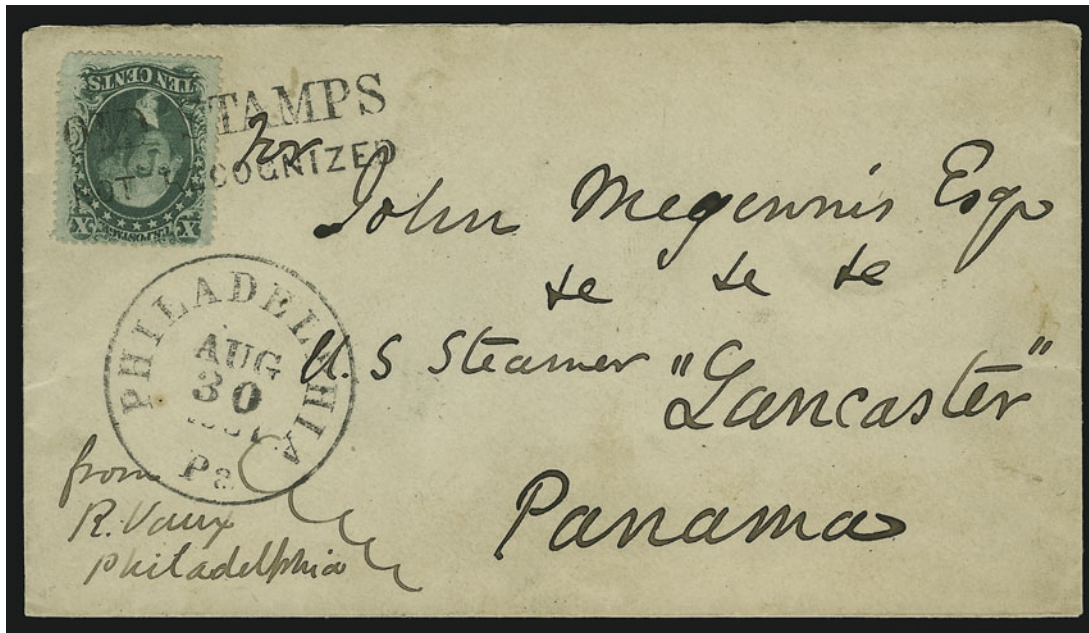 TEN CENTS
X X
U.S. POSTAGE
OLD STAMPS
NOT RECOGNIZED
For
John Megennis Esqr
&c &c &c
U.S Steamer "Lancaster"
Panama
PHILADELPHIA
AUG
30
Pa
from
R. Vaux
Philadelphia